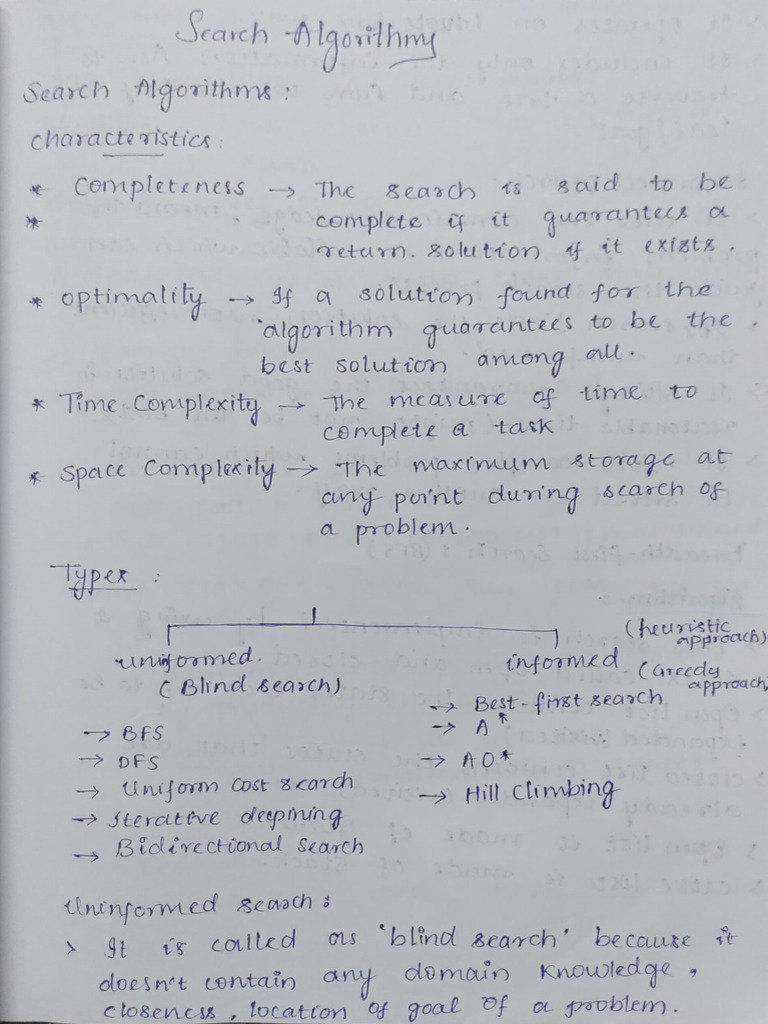 Search Algorithms
Search Algorithms :
Characteristics :
* Completeness → The search is said to be
* complete if it guarantees a
return. solution if it exists.
* Optimality → If a solution found for the
algorithm guarantees to be the .
best solution among all.
* Time Complexity → The measure of time to
complete a task
* Space Complexity → The maximum storage at
any point during search of
a problem.
Types :
uniformed. informed (heuristic approach)
(Blind search) (Greedy approach)
→ Best-first search
→ BFS → A*
→ DFS → AO*
→ Uniform cost search → Hill Climbing
→ Iterative deepining
→ Bidirectional Search
Uninformed search :
> It is called as 'blind search' because it
doesn't contain any domain knowledge ,
closeness , location of goal of a problem.